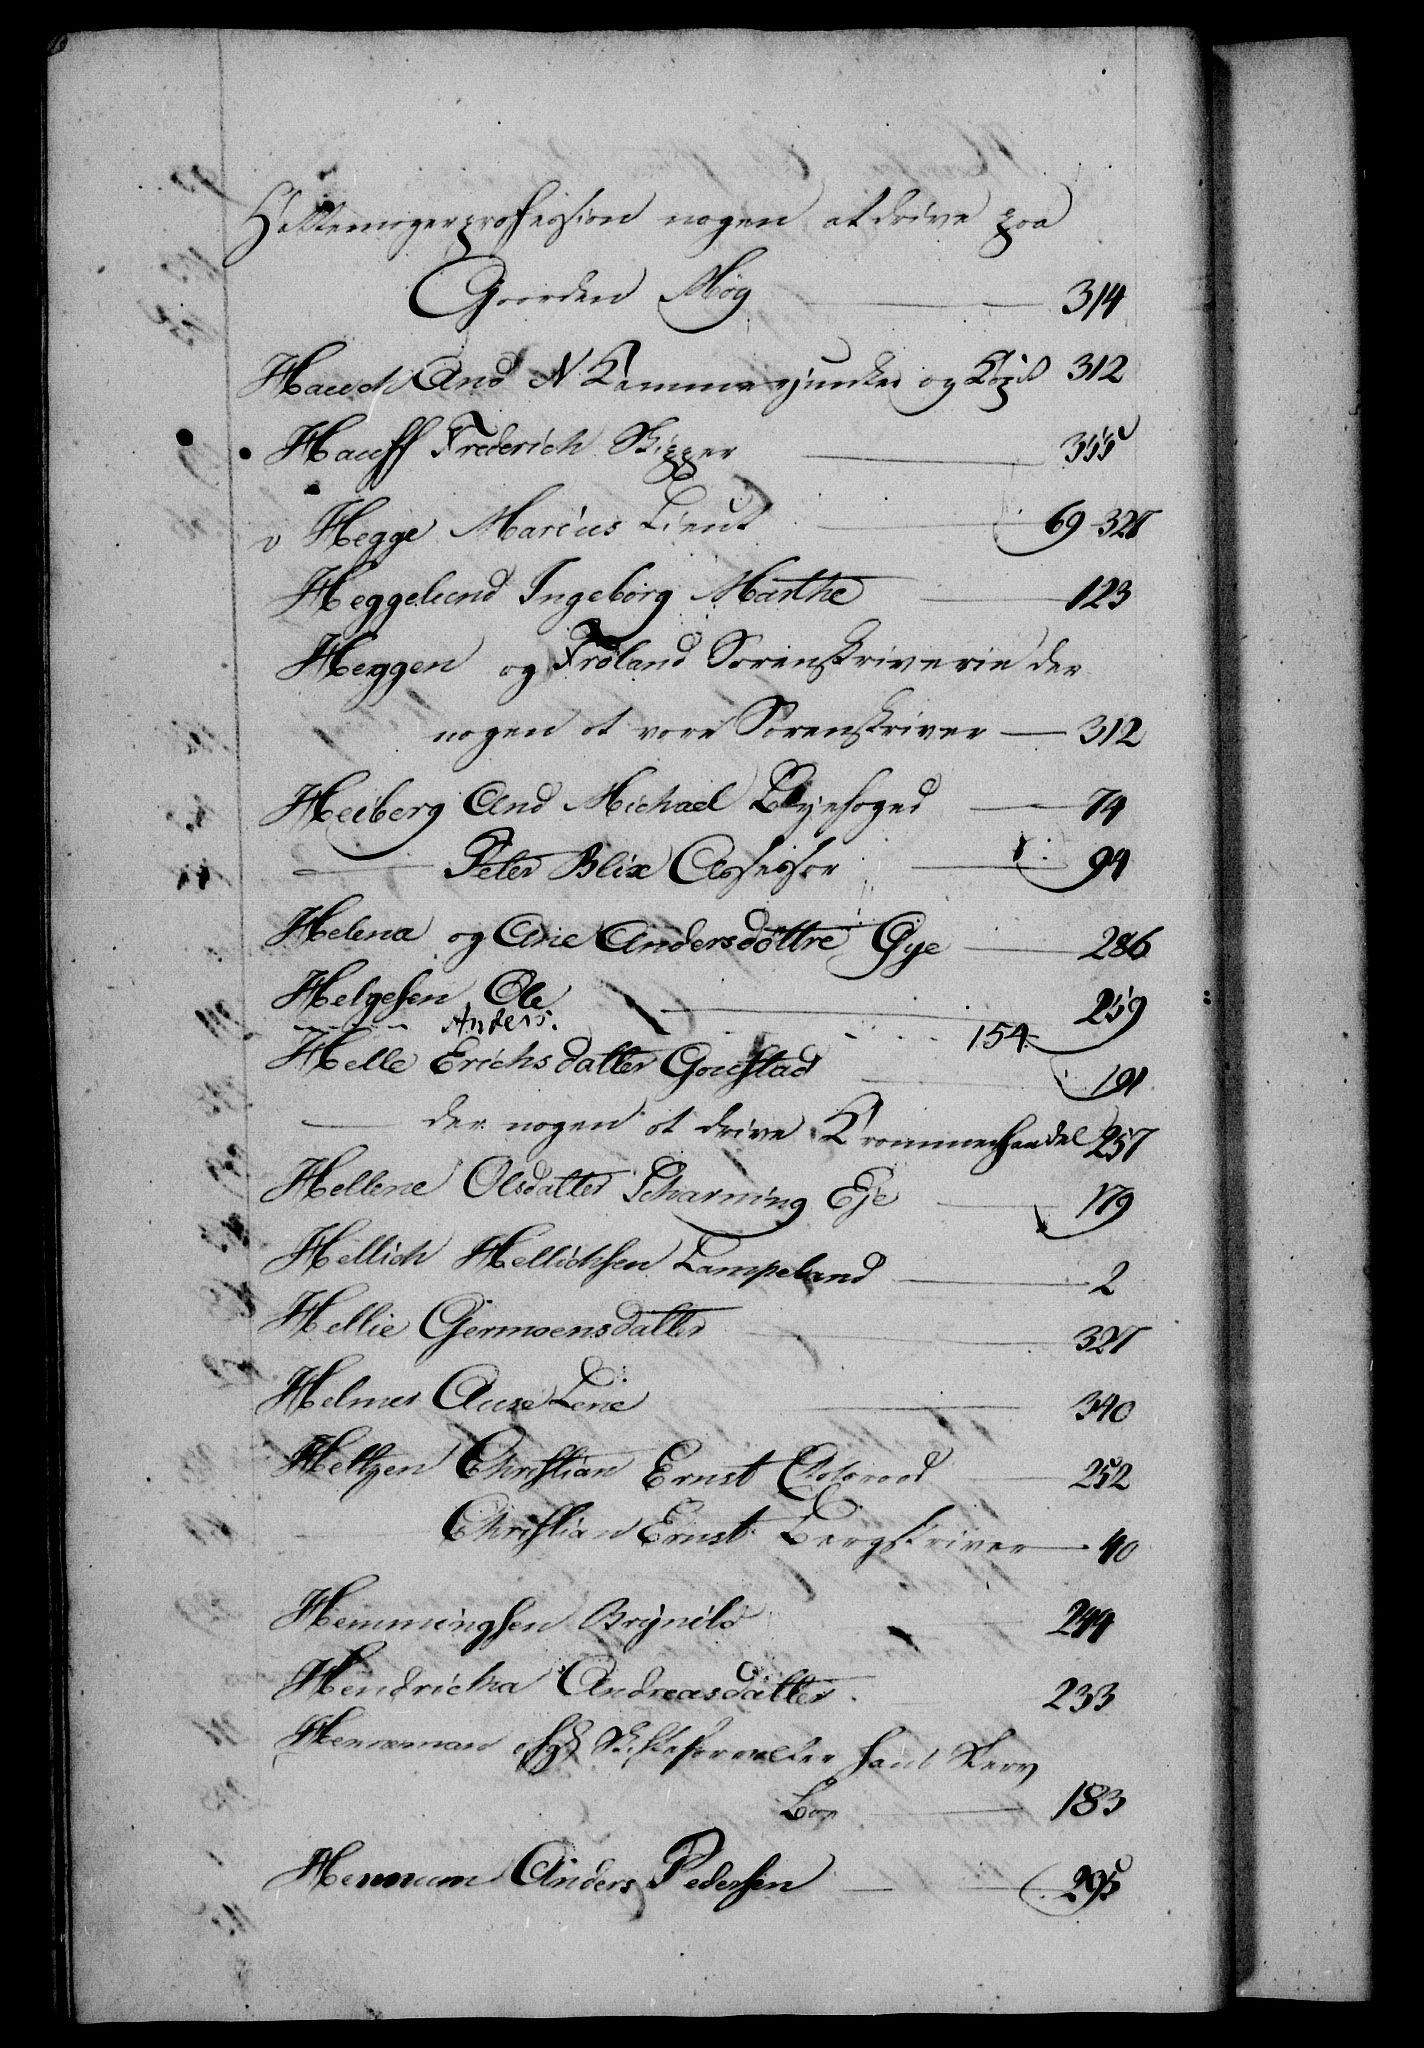 Hattemagerprofession nogen at drive paa
Gaarden Møg 314
Hauch And N Kammerjunker og Kapit 312
Hauff Frederich Skipper 355
v Hegge Marcus Lieut 69 327
Heggelund Ingeborg Marthe 123
Heggen og Frøland Sorenskriverie der
nogen at være Sorenskriver 312
Heiberg And Michael Byefoged 74
Peter Blix Assessor 94
Helena og Ane Andersdøttre Øye 286
Helgesen Ole 259
Anders. 154
Helle Erichsdatter Goustad 191
der nogen at drive Krammerhandel 257
Hellene Olsdatter Scharning Eje 179
Hellich Hellichsen Lampeland 2
Hellie Germoensdatter 327
Helmer Ane Lene 340
Heltzen Christian Ernst 252
Christian Ernst Bergskriver 40
Hemmingsen Brynild 244
Hendricha Andreasdatter 233
Henneman Skifteforvalter Sterv
Boe 183
Hennum Anders Pedersen 295